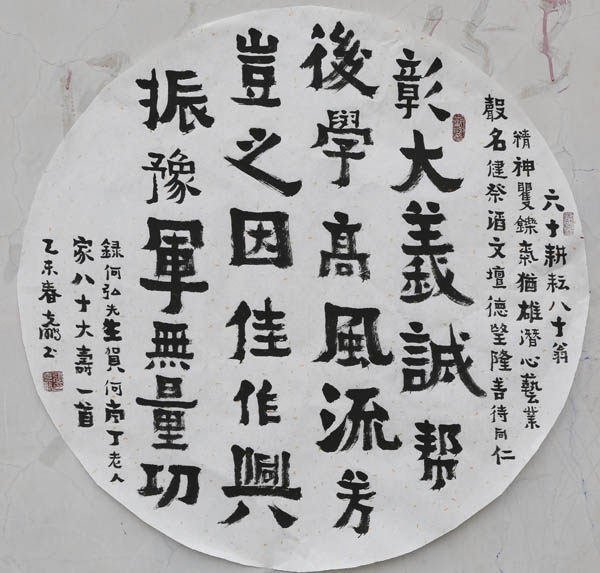 六十耕耘八十翁
精神矍鑠氣猶雄潛心藝業
聲名健祭酒文壇德望隆善待同仁
彰大義誠帮
後學高風流芳
豈之因佳作興
振豫軍無量功
録何弘先生賀何南丁老人
家八十大壽一首
乙未春